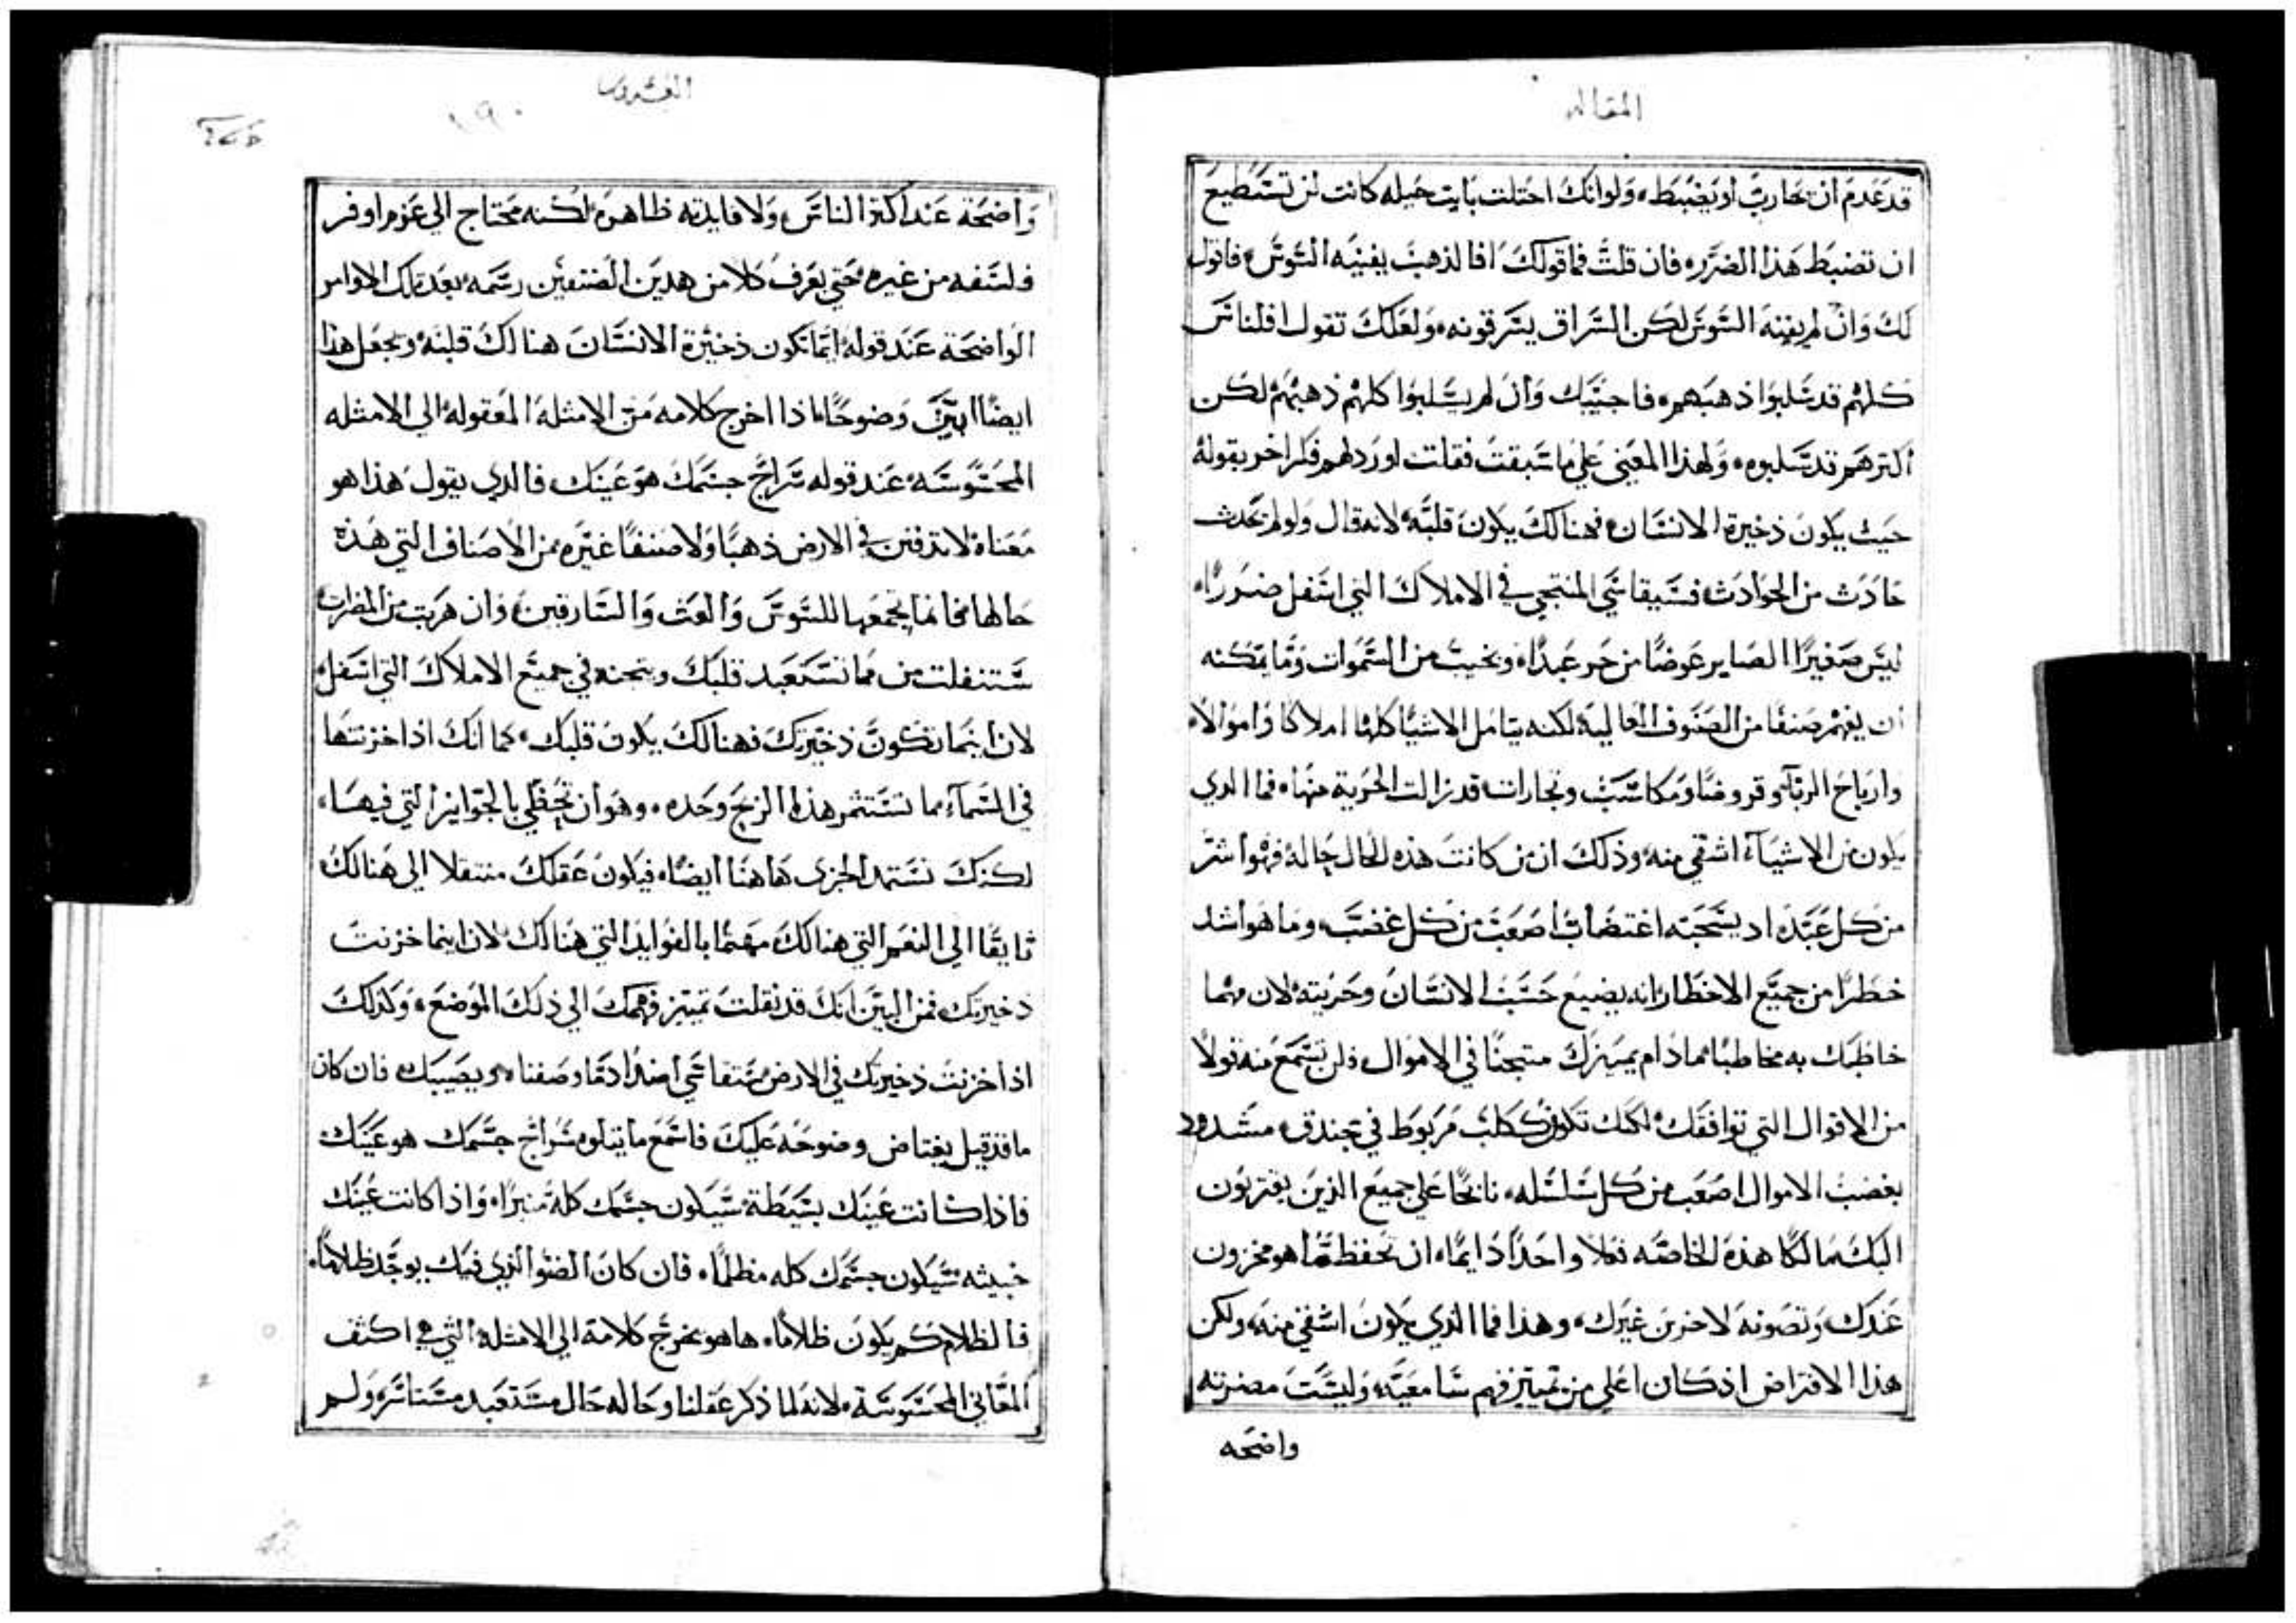 المقاله
قد عَدم ان تحارب او يضبط، وَلوانك احتلت بايت حيله كانت لن تستطيع
ان تضبط هَذا الضرر، فان قلتَ فما قولكَ افالذهبَ يفنيه السَّوسَ، فاقول
لكَ وَانْ لم يفنه السَّوسَ لكن السَّراق يسَرقونه، وَلعَلكَ تقول افلناسَ
كلهُم قد سَلبوَا ذهبَهم، فاجيبك وَانَ لم يسَلبوَا كلهُم ذهبَهُم لكن
اكثرهَم قد سَلبوه، وَلهذا المعَني عَلي مَا سَبقتَ فقلت اوردلهم فكرا اخر بقولهُ
حَيث يكونَ ذخيرة الانسَان، فهنالكَ يكونَ قلبَه، لانه قال وَلو لم تحَدث
حَادَث من الحَوادَث فسَيقاسَي المنتجي في الاملاكَ التي اسَفل ضرَورًا،
ليسَ صَغيرًا الصَاير عَوضًا من حَر عَبدًا، ويخيبَ من السَّمَوات وَمَا يمَكنه
ان يفهمَ صَنفًا من الصَنَوف العَاليَة، لكنه يتامَل الاشيَا كلهَا املاكا وَامَوالاَ،
وارباحَ الربَا، وقروضًا وَمَكاسَبَ وتجارات قد زالت الحَرية منهَا، فما الذي
يكون من الاشيَآء اشقي منه، وذلكَ ان من كانتَ هذه الحَال حَالهُ فهوَ اشرَ
من كل عَبَد، اد يسَحَبه اغتصَابًا اصَعَبَ من كل غضبَ، ومَا هَو اشد
خطَرًا من جميَع الاخطَار، انه يضيعَ حَسَبَ الانسَانَ وحَريته، لان مهمَا
خاطبَك به مخاطبًا، مادَام يميزكَ متبجنًا في الامَوال، فلن تسَمَع منه قولاً
من الاقوال التي توافقك، لكنك تكون ككلبَ مَربوَط في خندق، مشَدود
بغضبَ الاموال اصَعَب من كل سَلسَله، نابحًا عَلي جميَع الذينَ يقتربَون
اليكَ مَالكا هَذه الخاصَه فعَلا واحَدًا دَايمًا، ان تحَفظ مَا هو مخزون
عَندَك وَتصَونه لاخرين غيَرك، وهَذا فما الذي يكَونَ اشقي منه، ولكن
هَذا الافتراض اذ كان اعَلي من تمييَز فهم سَامعَيَه، وَليسَتَ مضرته
واضحَه
الغشرون
١٩٠
وَاضحَة عَند اكثر الناسَ، وَلا فايدته ظاهرَه، لكنه محَتاج الي عَزم اوفر
الوَاضحَة عَند قوله ايَنما تكون ذخيَرة الانسَانَ هنالكَ قلبَه، ويجعَل هذا
ايضًا ابيَنَ وَضوحًا، اذا اخرج كلامه مَن الامثلهَ المَعقولهَ الي الامثله
المحَسَوسَه، عَند قوله سَراجَ جسَمكَ هوَ عَينَك، فالدي يقولَ هَذا هو
مَعَناه لا تدفنن في الارض ذهبًا وَلا صَنفًا غيَره من الاَصَناف التي هَذه
حَالها، فانما يجمَعَها للسَّوسَ وَالعَث وَالسَّارقينَ، وَان هَربَت من المضرات
لان اينَما تكَونَ ذخيَرتكَ فهنالكَ يكَونَ قلبَك، كما انكَ اذا خزنتها
في السَّمَاء مَا تسَتثمر هَذا الربَح وَحَده، وهوَ ان تحَظي بالجَوايز التي فيهَا،
لكنكَ تسَتمد الجزي هَاهنَا ايضًا، فيَكونَ عَقلكَ منتقلا الي هَنالكَ
تايقًا الي النعَم التي هنالكَ، مهَتمًا بالفوايَد التي هَنالكَ، لان اينما خزنتَ
ذخيرتك، فمن البيَن انكَ قد نقلتَ تمييَز فهمكَ الي ذلكَ الموَضعَ، وَكذلكَ
مَا قد قيل يغتاض وضوحَه عَليكَ، فاسَمَع مَا يتلوه، سَراجَ جسَمَك هو عَينَك،
فاذا كانت عَينَك بسَيَطة سَيَكون جسَمَك كله مَنيرًا، وَاذا كانت عَينَك
خبيثه سَيَكون جسَمَك كله مظلمًا، فان كانَ الضوَ الذي فيَك يوجَد ظلامًا،
فالظلام كم يكونَ ظلامًا، هاهو يخرجَ كلامَه الي الامثلهَ التي هي اكثف
المعَاني المحَسَوسَة، لانه لما ذكر عَقلنا وحَاله حَال مسَتعَبد مسَتاسَر، وَلم